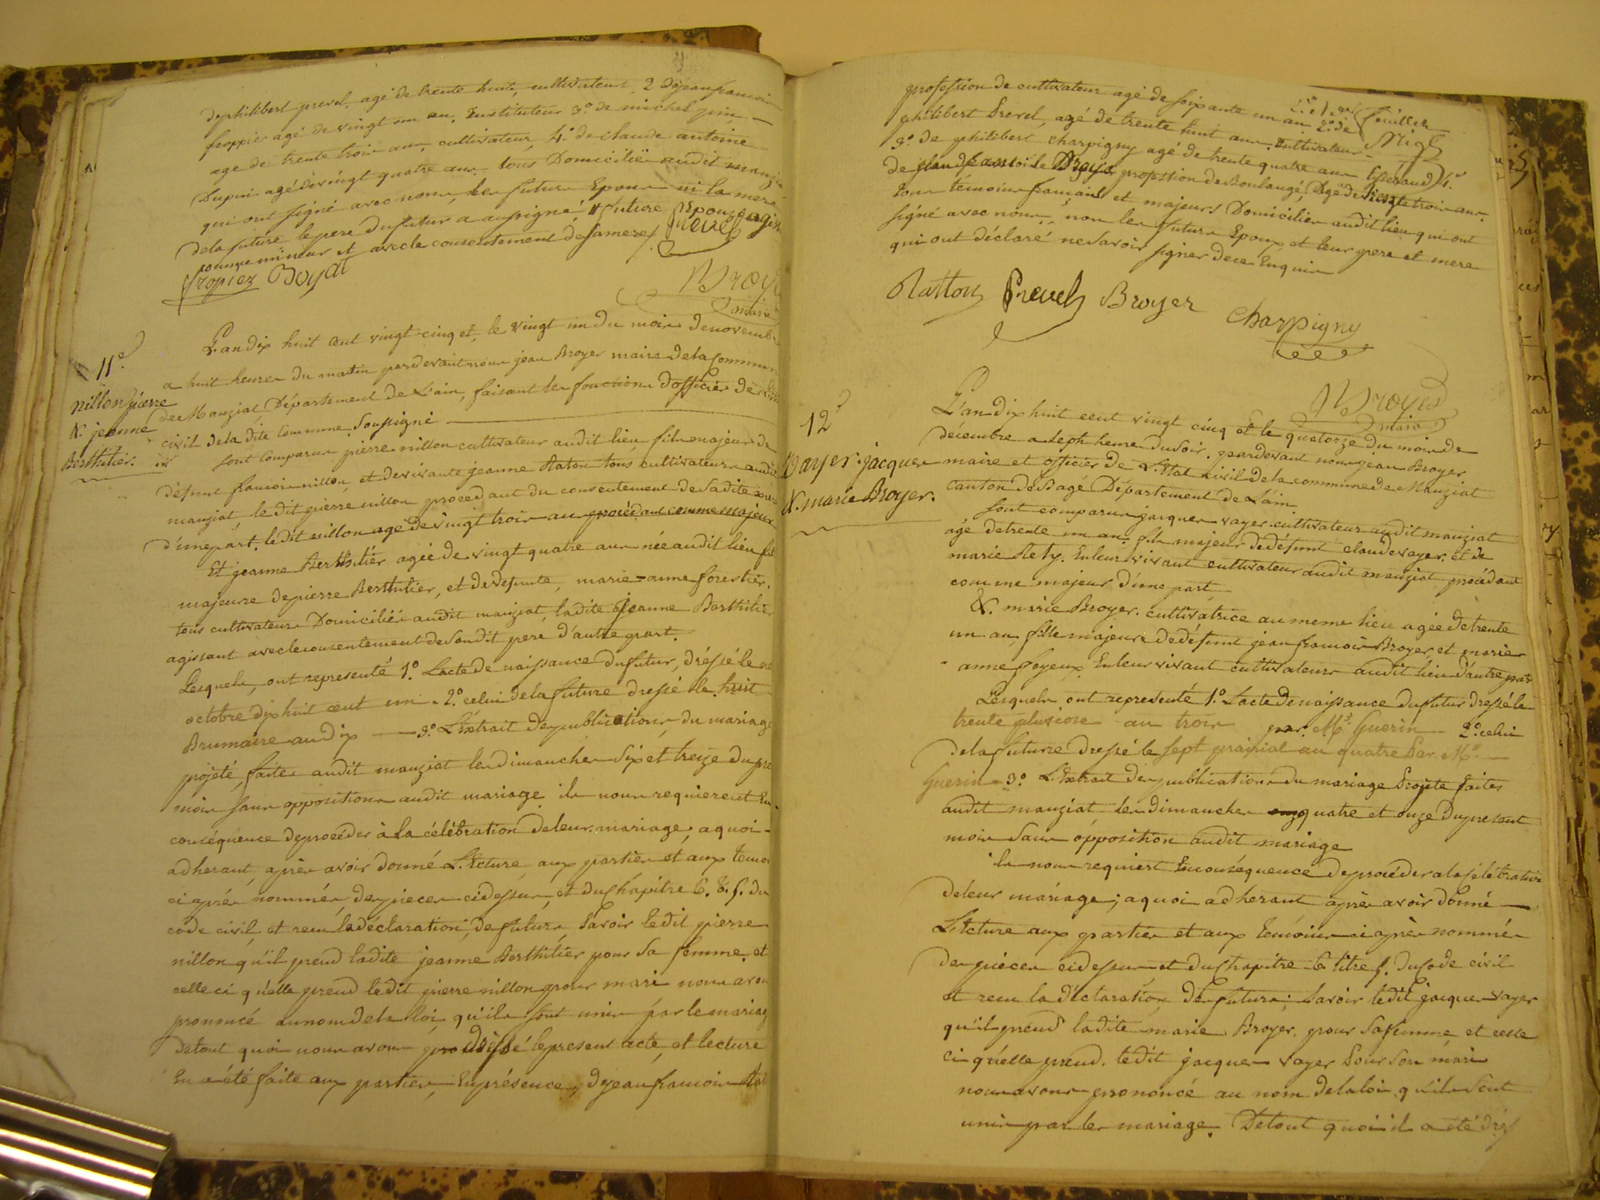 de philibert prevel, agé de trente huit, cultivateur, 2° de jean francois
froppier agé de vingt un an, Instituteur 3° de michel pin
age de trente trois ans, cultivateur, 4° de claude antoine
Dupuis agé de vingt quatre ans tous Domiciliés audit manziat
qui ont signé avec nous, les futurs Epoux ni la mere
dela future, le pere du futur a ausignné, # future Epouse agissant
comme mineur et avec le consentement de sa mere
fropier Boyat Prevel
Broyer
maire
11e
nillon pierre
& jeanne
Berthilier.
L'an dix huit cent vingt cinq et, le vingt un du mois de novembre
a huit heures du matin pardevant nous jean Broyer maire de la commune
de Manziat Département de L'ain, faisant les fonctions d'officier de l'état
civil dela dite Commune, Soussigné
sont Comparus pierre nillon cultivateur audit lieu fils majeur de
défunt francois nillon, et de vivante jeanne Raton tous cultivateurs audit
manziat, le dit pierre nillon procedant du consentement de sa dite mere
d'une part. le dit nillon age de vingt trois an procedant comme majeur
Et jeanne Berthilier agée de vingt quatre ans née audit lieu fille
majeure de pierre Berthilier, et de défunte, marie-anne forestier.
tous cultivateurs Domiciliés audit manziat, ladite jeanne Berthilier
agissant avec le consentement de son dit pere d'autre part.
Lesquels, ont representé 1° L'acte de naissance du futur, dréssé le
octobre dix huit cent un - 2° celui de la future dressé le huit
Brumaire an dix — 3° L'Extrait des publications du mariage
projeté, faites audit manziat les dimanches six et treize du present
mois sans oppositions audit mariage ils nous requierent En
conséquence de procéder à la célébration de leur mariage; a quoi
adherant, après avoir donné Lecture, aux parties et aux temoins
ci après nommés, des pieces cidessus, et du Chapitre 6. t. 5. du
code civil, et recu la déclaration, des futurs, savoir le dit pierre
nillon qu'il prend ladite jeanne Berthilier pour sa femme, et
celle ci qu'elle prend le dit pierre nillon pour mari nous avons
prononcé au nom de la loi, qu'ils sont unis par le mariage
detout quoi nous avons dressé le present acte, et lecture
En a été faite aux parties, En présence, de jean francois
profession de cultivateur agé de soixante un an 2° de
philibert Prevel, agé de trente huit ans cultivateur
3° de philibert charpigny agé de trente quatre ans tisserand, 4°
de Broyer, profession de Boulangé, agé de trente trois ans
tous témoins français et majeurs Domiciliés audit lieu qui ont
signé avec nous, non les futurs Epoux et leur pere et mere
qui ont déclaré ne savoir signer de ce Enquis
Ratton Prevel Broyer Charpigny
Broyer
maire
12e
Vayer. jacques
& marie Broyer.
L'an dix huit cent vingt cinq et le quatorze du mois de
décembre a Sept heures du soir, pardevant nous jean Broyer
maire et officier de L'Etat Civil de la commune de Manziat
Canton de Bagé Département de L'ain
Sont comparus jacques vayer cultivateur audit manziat
agé detrente un an, fils majeur de défunt claude vayer, et de
marie Rety. En leur vivant cultivateurs audit manziat procédant
comme majeur d'une part
&. marie Broyer. cultivatrice au meme lieu agée de trente
un an, fille majeure de défunt jean francois Broyer et marie
anne foyeux, En leur vivant cultivateurs audit lieu d'autre part
Lesquels, ont representé 1° L'acte de naissance du futur dressé le
trente pluviose an trois par Mr. Guerin 2° celui
de la future dressé le sept prairial an quatre Par Mr.
Guerin - 3° L'Extrait des publications du mariage Projeté faites
audit manziat les dimanches quatre et onze du present
mois Sans opposition audit mariage
ils nous requiert En conséquence de procéder a la célébration
deleur mariage; a quoi adherant après avoir donné
Lecture aux parties et aux temoins ci après nommés
des pieces cidessus et du Chapitre 6 titre 5. du Code civil
et recu la déclaration des futurs; savoir le dit jacques vayer
qu'il prend ladite marie Broyer, pour sa femme et celle
ci qu'elle prend. le dit jacques vayer Pour Son mari
nous avons prononcé au nom de la loi qu'ils sont
unis par le mariage. De tout quoi il a été dres